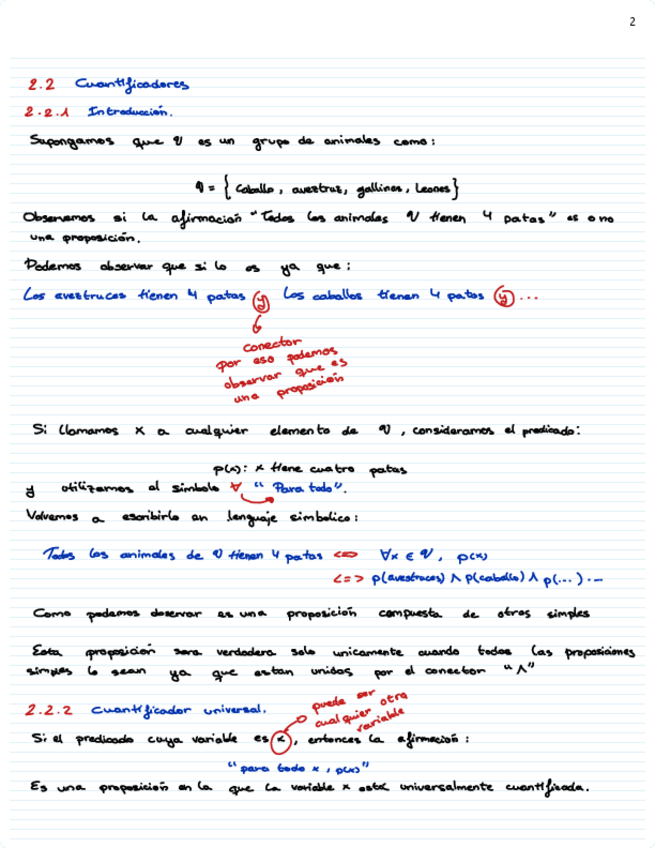 2
2.2 Cuantificadores
2.2.1 Introducción.
Supongamos que U es un grupo de animales como:
U = { Caballo, avestruz, gallinas, Leones }
Observemos si la afirmación "Todos los animales U tienen 4 patas" es o no
una proposición.
Podemos observar que si lo es ya que:
Los avestruces tienen 4 patas y los caballos tienen 4 patas y ...
conector
por eso podemos
observar que es
una proposición
Si llamamos x a cualquier elemento de U, consideramos el predicado:
p(x): x tiene cuatro patas
y utilizamos el simbolo ∀ "Para todo".
Volvemos a escribirlo en lenguaje simbolico:
Todos los animales de U tienen 4 patas <=> ∀x ∈ U, p(x)
<=> p(avestruces) ∧ p(caballo) ∧ p(...) ...
Como podemos observar es una proposición compuesta de otras simples
Esta proposición sera verdadera solo unicamente cuando todas las proposiciones
simples lo sean ya que estan unidas por el conector "∧"
2.2.2 Cuantificador universal.
puede ser
cualquier otra
variable
Si el predicado cuya variable es x, entonces la afirmación:
"para todo x, p(x)"
Es una proposición en la que la variable x esta universalmente cuantificada.